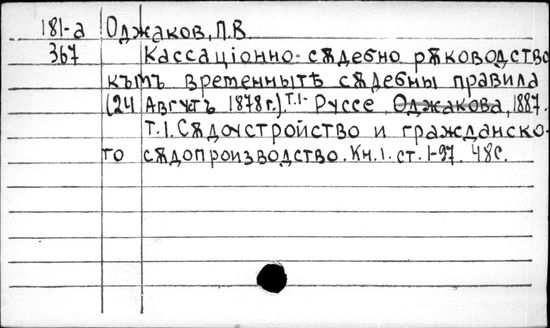 181-а Оджаков, П.В.
367 Кассаціонно-сѫдебно рѫководство
къмъ временнытѣ сѫдебны правила
(24 Августъ 1878 г.) Т.1- Руссе, Оджакова, 1887.
Т.1. Сѫдоустройство и гражданско-
то сѫдопроизводство. Кн.1. ст.1-97. 48с.